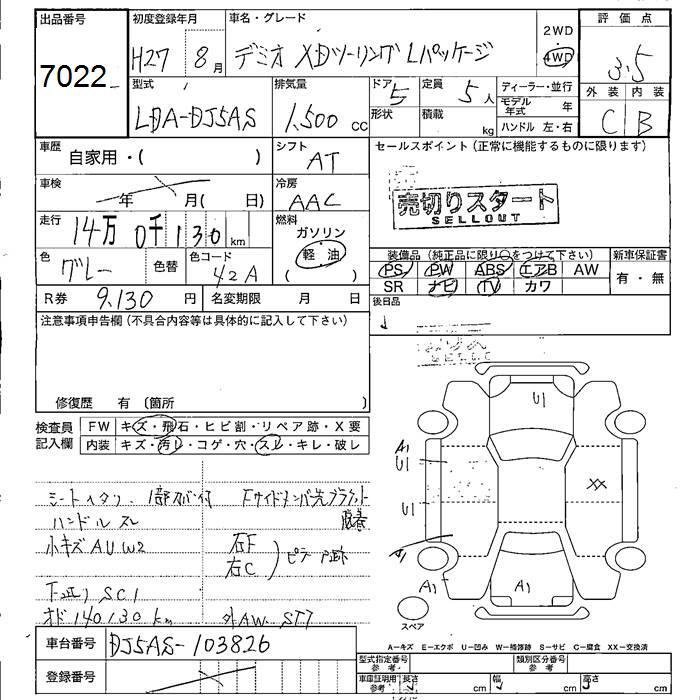 出品番号
7022
初度登録年月
H27 8月
車名・グレード
デミオ XDツーリング Lパッケージ
2WD
4WD
評価点
3.5
外装 内装
C B
型式
LDA-DJ5AS
排気量
1,500 cc
ドア 5
形状
定員 5人
積載 kg
ディーラー・並行
モデル年式 年
ハンドル 左・右
車歴
自家用・( )
シフト
AT
セールスポイント(正常に機能するものに限ります)
売切りスタート
SELLOUT
車検
年 月( 日)
冷房
AAC
走行
14万0千130km
燃料
ガソリン
軽油
( )
色
グレー
色替
色コード
42A
装備品(純正品に限り○をつけて下さい)
PS PW ABS エアB AW
SR ナビ TV カワ
新車保証書
有・無
R券 9,130円
名変期限 月 日
後日品
注意事項申告欄(不具合内容等は具体的に記入して下さい)
修復歴 有 (箇所 )
検査員記入欄
FW キズ・飛石・ヒビ割・リペア跡・X要
内装 キズ・汚レ・コゲ・穴・スレ・キレ・破レ
ハンドルスレ
小キズ AUW2
右F
右C
SC1
140,130km
外AW ST7
U1
A1
U1
XX
A1
A1
A1
スペア
A-キズ E-エクボ U-凹み W-補修跡 S-サビ C-腐食 XX-交換済
車台番号
DJ5AS-103826
登録番号
型式指定番号
参考
類別区分番号
参考
車庫証明用
参考
長さ cm
幅 cm
高さ cm